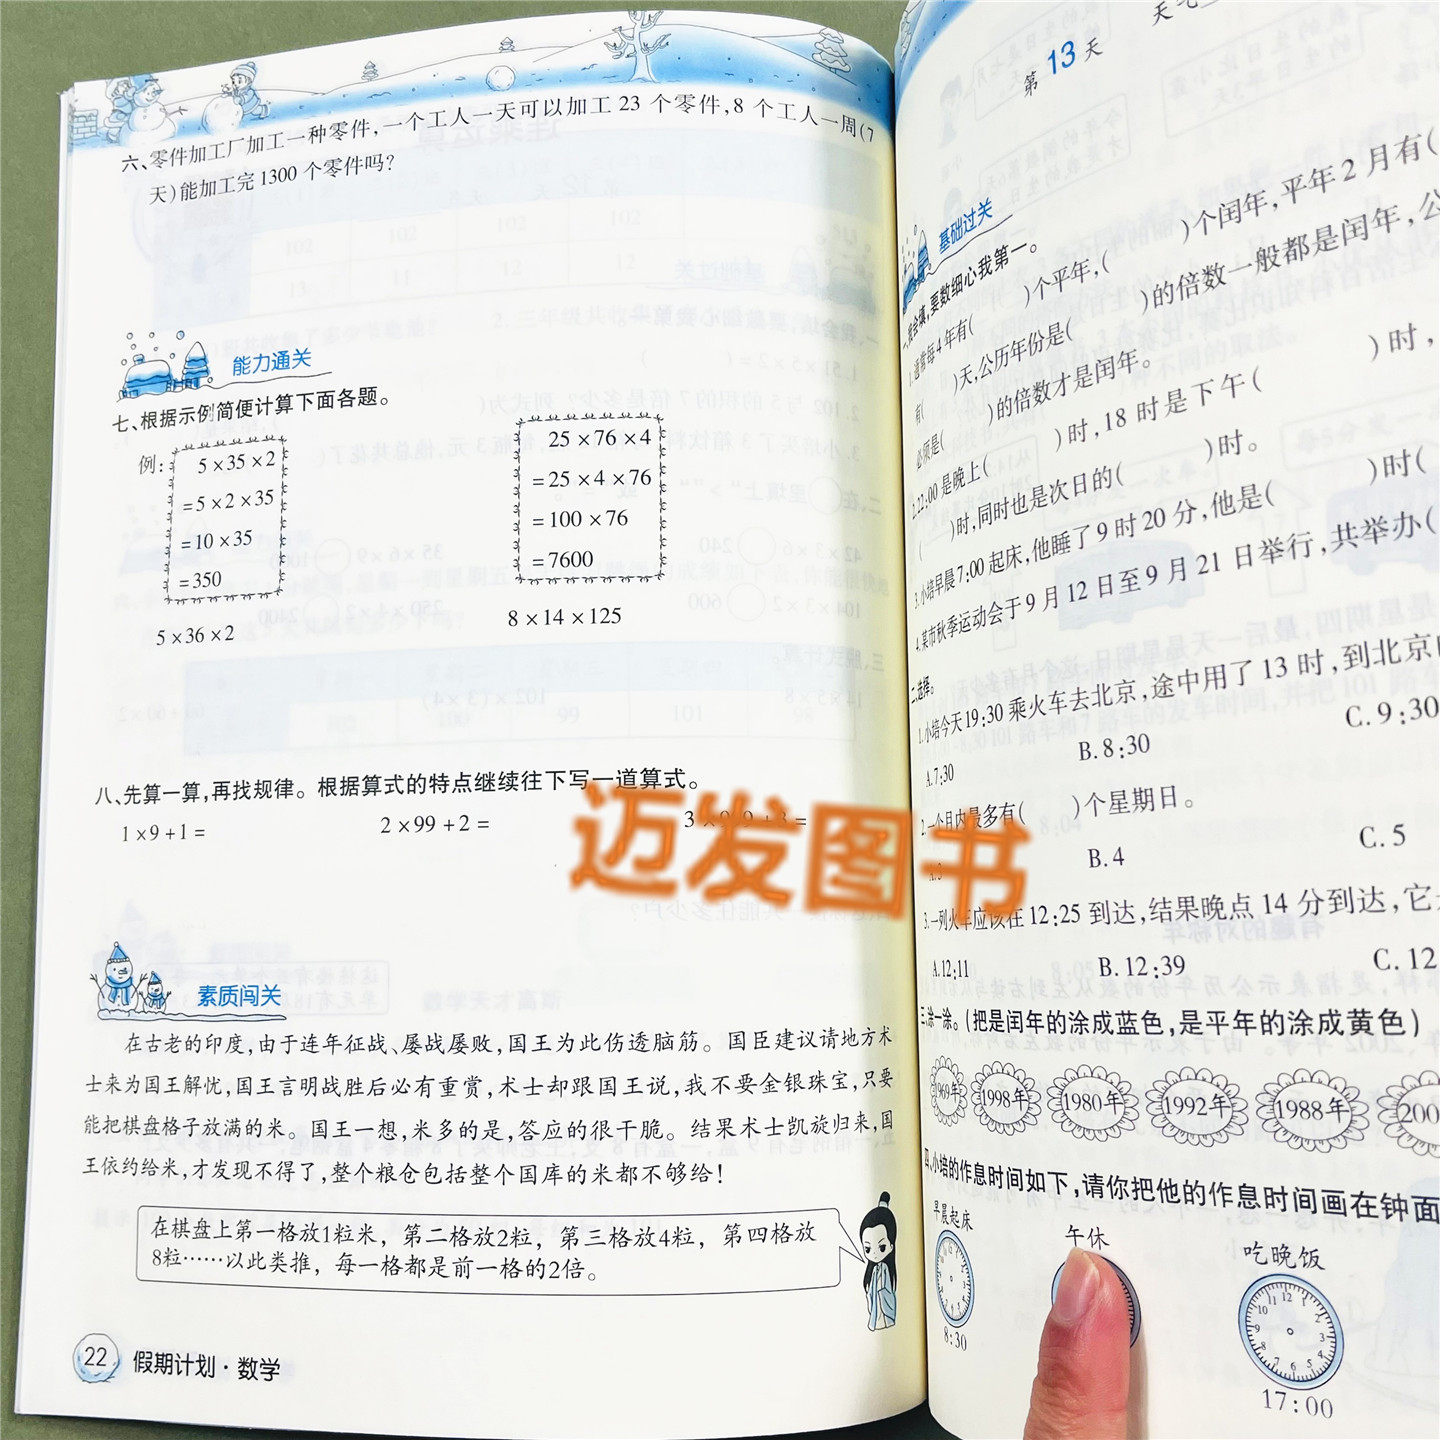 六、零件加工厂加工一种零件,一个工人一天可以加工 23 个零件,8 个工人一周(7
天)能加工完 1300 个零件吗?
能力通关
七、根据示例简便计算下面各题。
例:
5×35×2
=5×2×35
=10×35
=350
25×76×4
=25×4×76
=100×76
=7600
5×36×2
8×14×125
八、先算一算,再找规律。根据算式的特点继续往下写一道算式。
1×9+1=
2×99+2=
迈发图书
素质闯关
在古老的印度,由于连年征战、屡战屡败,国王为此伤透脑筋。国臣建议请地方术
士来为国王解忧,国王言明战胜后必有重赏,术士却跟国王说,我不要金银珠宝,只要
能把棋盘格子放满的米。国王一想,米多的是,答应的很干脆。结果术士凯旋归来,国
王依约给米,才发现不得了,整个粮仓包括整个国库的米都不够给!
在棋盘上第一格放1粒米,第二格放2粒,第三格放4粒,第四格放
8粒……以此类推,每一格都是前一格的2倍。
22 假期计划·数学
第 13 天
天气
基础过关
一、我会填,要数细心我第一。
1.通常每4年有( )个平年,( )个闰年,平年2月有(
)天,公历年份是( )的倍数一般都是闰年,公
必须是( )的倍数才是闰年。
2.22:00是晚上( )时,18时是下午( )时,
( )时,同时也是次日的( )时。
3.小培早晨7:00起床,他睡了9时20分,他是( )时(
4.某市秋季运动会于9月12日至9月21日举行,共举办(
二、选择。
1.小培今天19:30乘火车去北京,途中用了13时,到北京
A.7:30
B.8:30
C.9:30
2.一个月内最多有( )个星期日。
A.3
B.4
C.5
3.一列火车应该在12:25到达,结果晚点14分到达,它
A.12:11
B.12:39
C.12
三、涂一涂。(把是闰年的涂成蓝色,是平年的涂成黄色)
1969年
1998年
1980年
1992年
1988年
200
四、小培的作息时间如下,请你把他的作息时间画在钟面
早晨起床
8:30
午休
吃晚饭
17:00